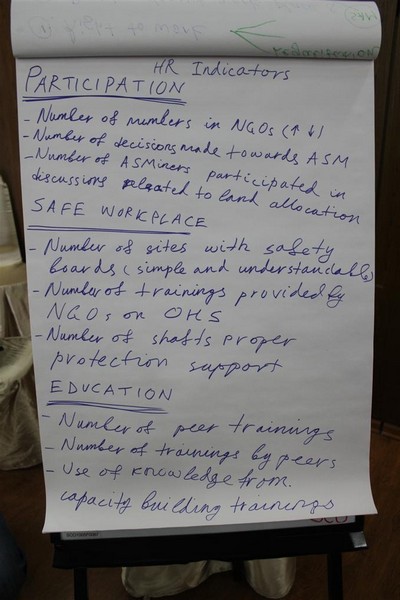 HR Indicators
PARTICIPATION
- Number of numbers in NGOs (↑↓)
- Number of decisions made towards ASM
- Number of ASMiners participated in
discussions related to land allocation
SAFE WORKPLACE
- Number of sites with safety
boards (simple and understandable)
- Number of trainings provided by
NGOs on OHS
- Number of shafts proper
protection support
EDUCATION
- Number of peer trainings
- Number of trainings by peers
- Use of knowledge from
capacity building trainings